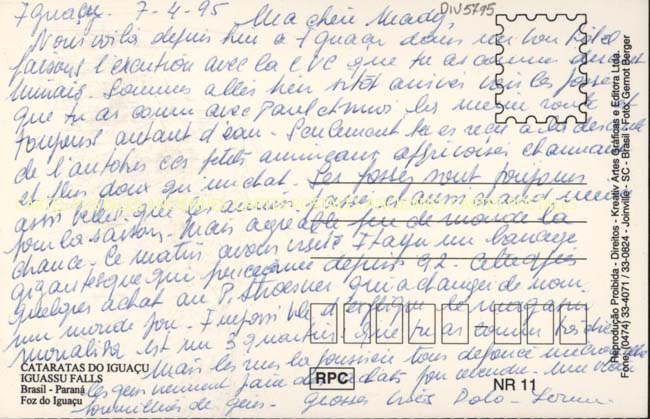 Iguaçu, 7-4-95 Ma chère Mady,
DIV5795
Nous voilà depuis hier à Iguaçu dans un bon hôtel
faisons l'excursion avec la CVC que tu as connu
Sommes allés hier sitôt arrivés voir les fosses
que tu as connu avec Paul et nous les même
toujours autant d'eau. Seulement tu es reçu à la descente
de l'autobus ces petits animaux apprivoisés
et plus doux qu'un chat. Les fosses sont toujours
aussi belles que les années passées et aussi chaud même
pour la saison. Mais agréable peu de monde la
chance. Ce matin avons visité Itaipu un barrage
gigantesque qui fonctionne depuis 92. Alla
quelques achat au P. Stroesner qui a changé de nom.
un monde fou. Impossible d'expliquer
monalisa est un que tu as connu
Mais les rues la poussière tous défoncé
les gens viennent faire des achats pour revendre. Une vraie
fourmilière de gens. grosses bises Dolo-
CATARATAS DO IGUAÇU
IGUASSU FALLS
Brasil - Paraná
Foz do Iguaçu
RPC
NR 11
Reprodução Proibida - Direitos - Kreativ Artes Gráficas e Editora Ltda.
Fone: (0474) 33-4071 / 33-0824 - Joinville - SC - Brasil - Foto: Gernot Berger